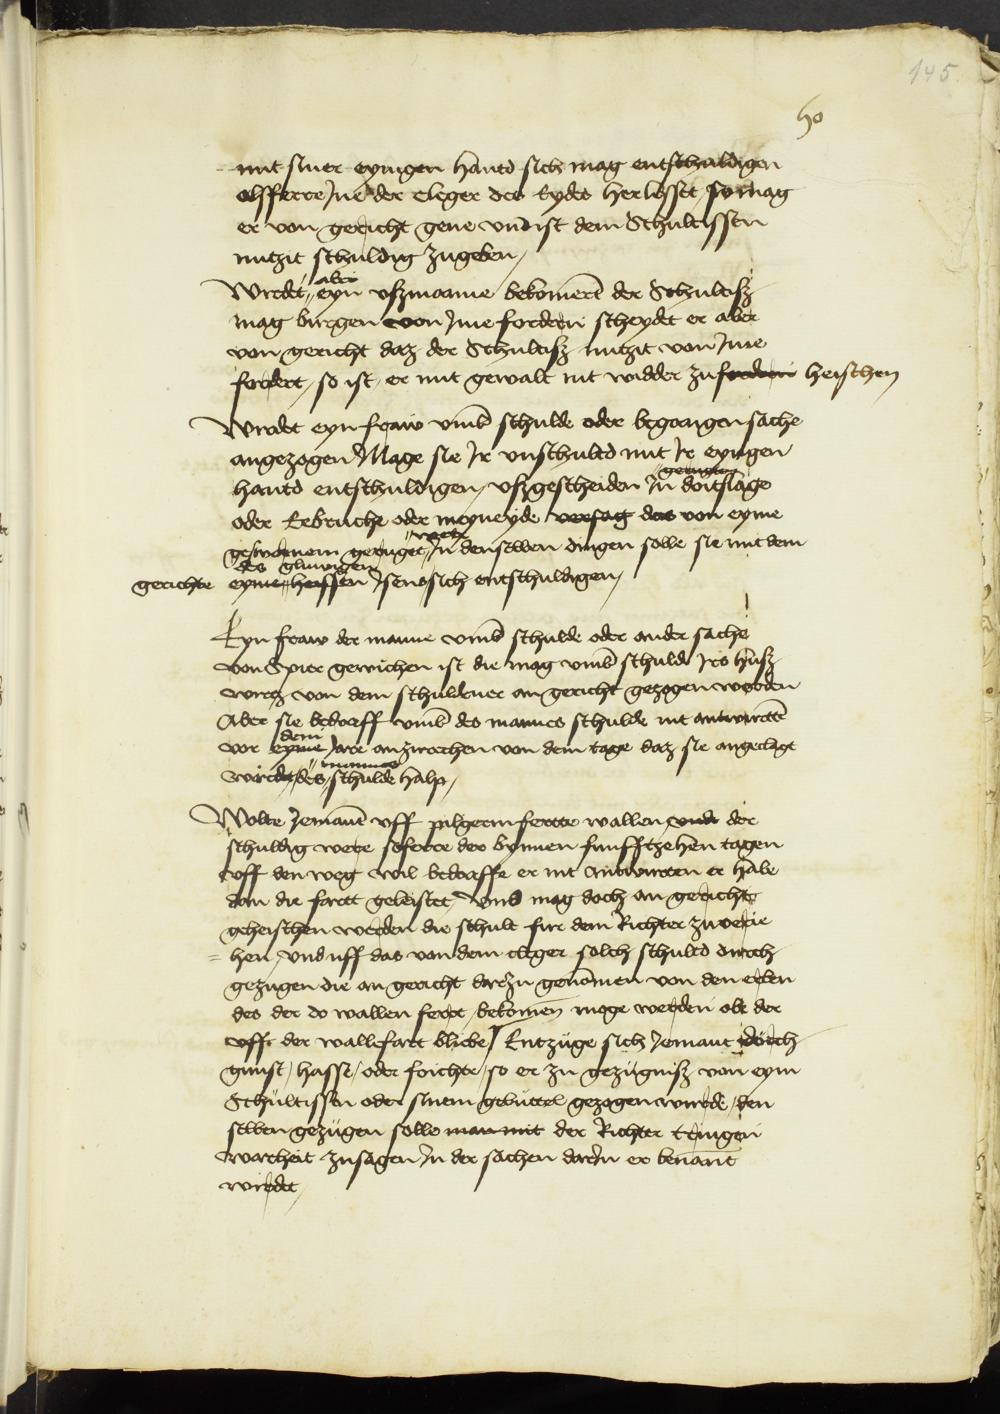 145.
60
mit siner eynigen hantd sich mag entschuldigen
alsfferre Ine der cleger des Eydes herlesset so mag
er von gericht gene vnd ist dem Schultissen
nutzit schuldig zugeben /
aber
Wirdet eyn vszmanne bekomert der Schultisz
mag burgen von Ime fordern scheydet er aber
von gericht daz der Schultisz nutzit von Ime
fordert / so ist er mit gewalt nit widder zu fordern heischen
Wirdet eyn fraw vmb schulde oder begangen sache
angezogen Mage sie Ir vnschultd mit Ir eynigen
hantd entschuldigen / vszgescheiden In doitslage
oder Eebruche oder meyneyde versag das von eyme
wortz
geswornem geruget / In denselben dingen solle sie mit dem
des gluwigen
gerichte eyme heissen Isen sich entschuldigen /
Eyn fraw der manne vmb schulde oder ander sache
von Spier gewichen ist die mag vmb schulde Irs husz
wirtz von dem schuldener an gericht gezogen werden
Aber sie bedorff vmb des mannes schulde nit antwurten
dem
vor eyme Jare anzurechen von dem tage daz sie angeclagt
mannes
wirdet / des schulde halp /
Wolte Jemant vff pilgerin fertte wallen vnd der
schuldig were soferre der bynnen funfftzehen tagen
vff den weg wil bedorffe er nit antwurten er habe
dan die fartt geleistet / Vnd mag doch an gericht
geheischen werden die schult fur dem Richter zu verie
= hen / vnd vff das von dem cleger solch schultd durch
gezugen die an gericht darzu genomen von den erben
des der do wallen fert / bekomen moge werden obe der
vff der wallefart bliebe / Entzuge sich Jemant durch
gunst / hasse / oder forchte / so er zu gezugnisz von eym
Schultissen oder sinem gebuttel gezogen wurde / den
selben gezugen solle man mit der Richter tringen
warheit zusagen In der sachen darIn er benant
wirdet /